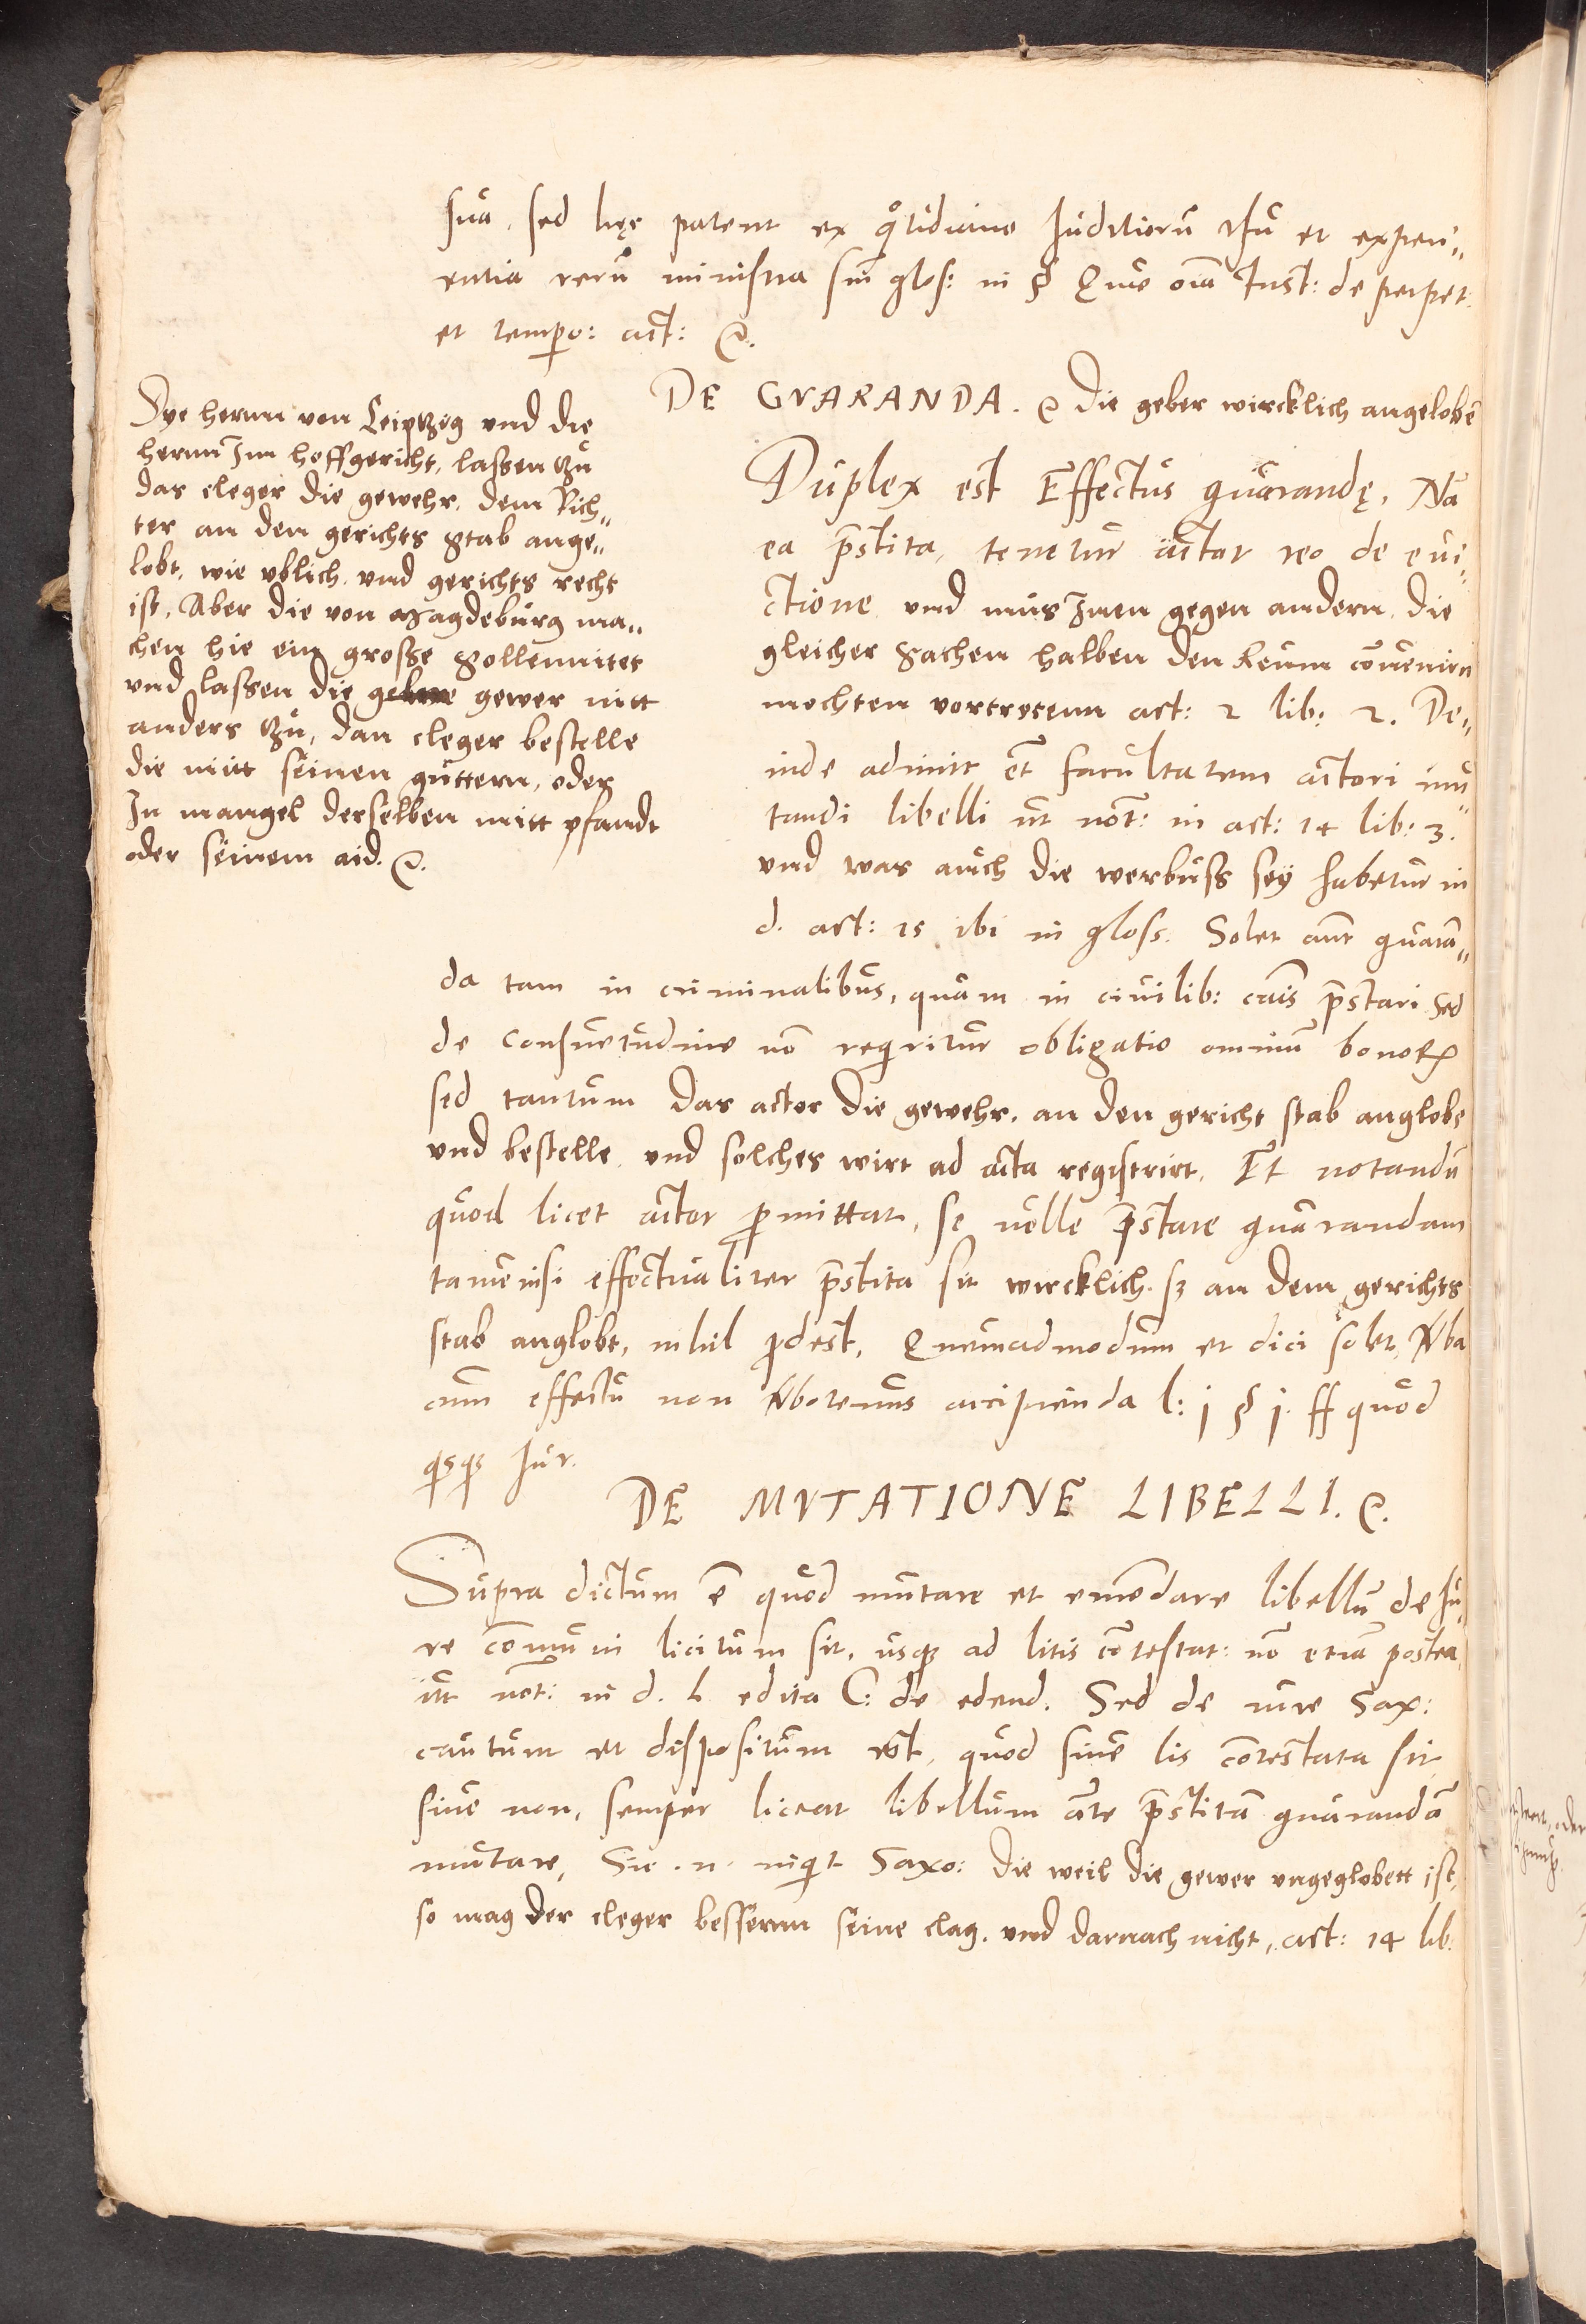 sua, sed hęc patent ex q̊tidiano Juditiorū usū et experi„
entia rerū ministra sm̄ glos: in § Quae oīa Inst: de perpet:
et tempo: act: &.
DE GVARANDA. & die geber wircklich angelobē
Dye hernn von Leiptzig und die
hernn Im hoffgericht, lassen zu
das cleger die gewehr, dem Rich„
ter an den gerichts stab ange„
lobt, wie vblich vnd gerichts recht
ist, Aber die von Magdeburg ma„
chen hie ein grosse sollennitet
vnd lassen die gewer nitt
anders zu, dan cleger bestelle
die mitt seinen guttern, oder
In mangel derselben mitt pfandt
oder seinem aid. &.
Duplex est Effectus guarandę, Nā
ea p̄stita, tenetur actor reo de evi„
ctione vnd mus Inen gegen andern die
gleicher sachen halben den keum cōuenirn
mochten vortretenn art: 2 lib: 2. De„
inde adimit et̄ facultatem actori mu„
tandi libelli ut not: in art: 14 lib: 3.
vnd was auch die werbuss sey habetur in
d. art: 15 ibi in gloss. Solet aut̄ guaran„
da tam in criminalibus, quam in ciuilib: cāis p̄stari sed
de consuetudine nō requiritur obligatio omniū bonoꝝ
sed tantum das actor die gewehr, an den gericht stab anglobe
vnd bestelle vnd solches wirt ad acta registrirt. Et notandū
quod licet actor ꝓmittat, se uelle p̄stare guarandam
tamē nisi effectualiter p̄stita sit wircklich sz an dem gerichts
stab anglobt, nihil ꝓdest, Quemadmodum et dici solet, Vba
cum effectu non Vbotenus accipienda l: j § j. ff quod
qsqz Jur.
DE MVTATIONE LIBELLI. &.
Supra dictum ē quod mutare et emēdare libellū de Ju„
re cōmuni licitum sit, usqz ad litis cōtestat: nō etiā postea,
ut not: in d. l. edita C: de edend. Sed de iure Sax:
cautum et dispositum est, quod siue lis cōtestata sit
siue non, semper liceat libellum āte p̄stitā guarandā
mutare, Sic .n. inqt Saxo: die weil die gewer vngeglobett ist,
so mag der cleger bessernn seine clag, vnd darnach nicht, art: 14 lib: